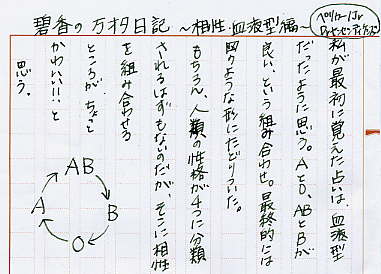 碧香の万オタ日記 ～相性・血液型編～
私が最初に覚えた占いは、血液型
だったように思う。AとO、ABとBが
良い、という組み合わせ。最終的には
図のような形にたどりついた。
もちろん、人類の性格が4つに分類
されるはずもないのだが、そこに相性
を組み合わせる
ところが、ちょっと
かわいい!!と
思う。
AB
A
B
O